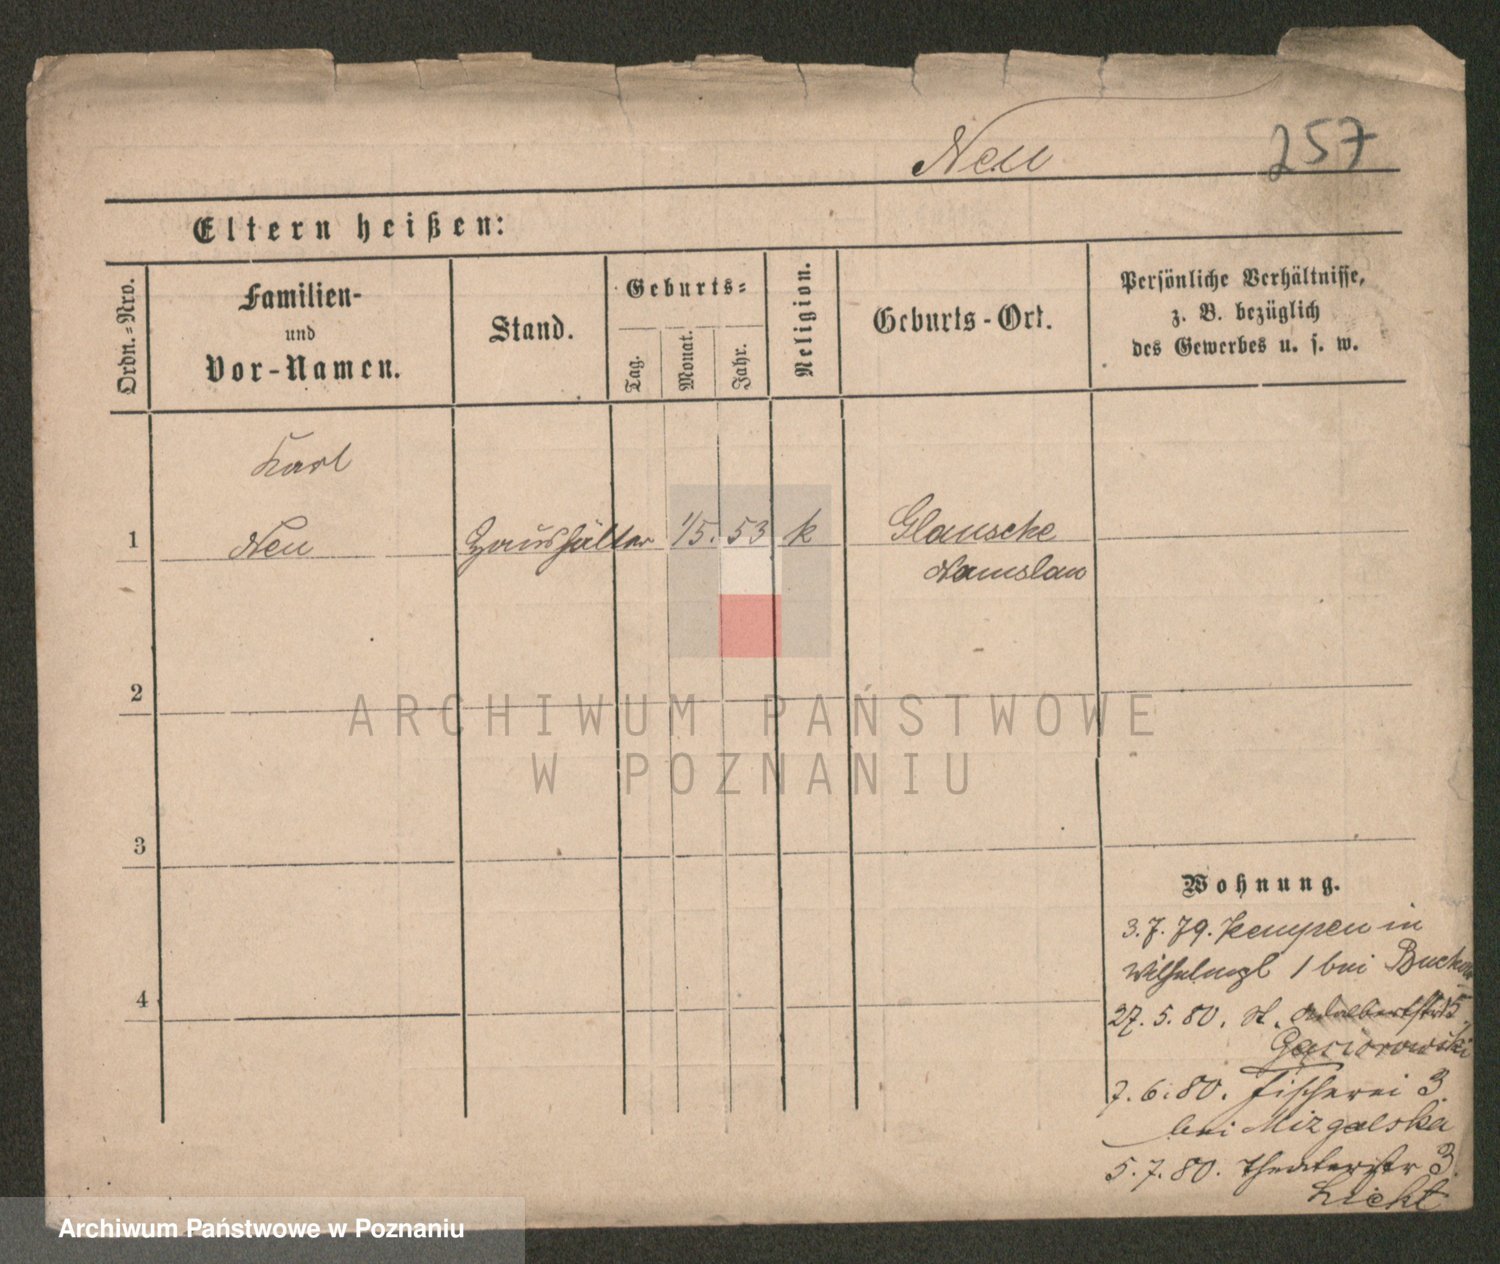 Neu
257
Eltern heißen:
Ordn.-Nro.
Familien-
und
Vor-Namen.
Stand.
Geburts-
Tag.
Monat.
Jahr.
Religion.
Geburts-Ort.
Persönliche Verhältnisse,
z. B. bezüglich
des Gewerbes u. s. w.
Karl
1 Neu Haushälter 1/5. 53 k Glausche
Namslau
2
3
4
Wohnung.
3.7.79. Kempen in
Wilhelmpl 1 bei
27.5.80. St. Adalbertstr 15
Gasiorowski
7.6.80. Fischerei 3.
bei Mizgalska
5.7.80. Theaterstr 3.
Licht
ARCHIWUM PAŃSTWOWE
W POZNANIU
Archiwum Państwowe w Poznaniu